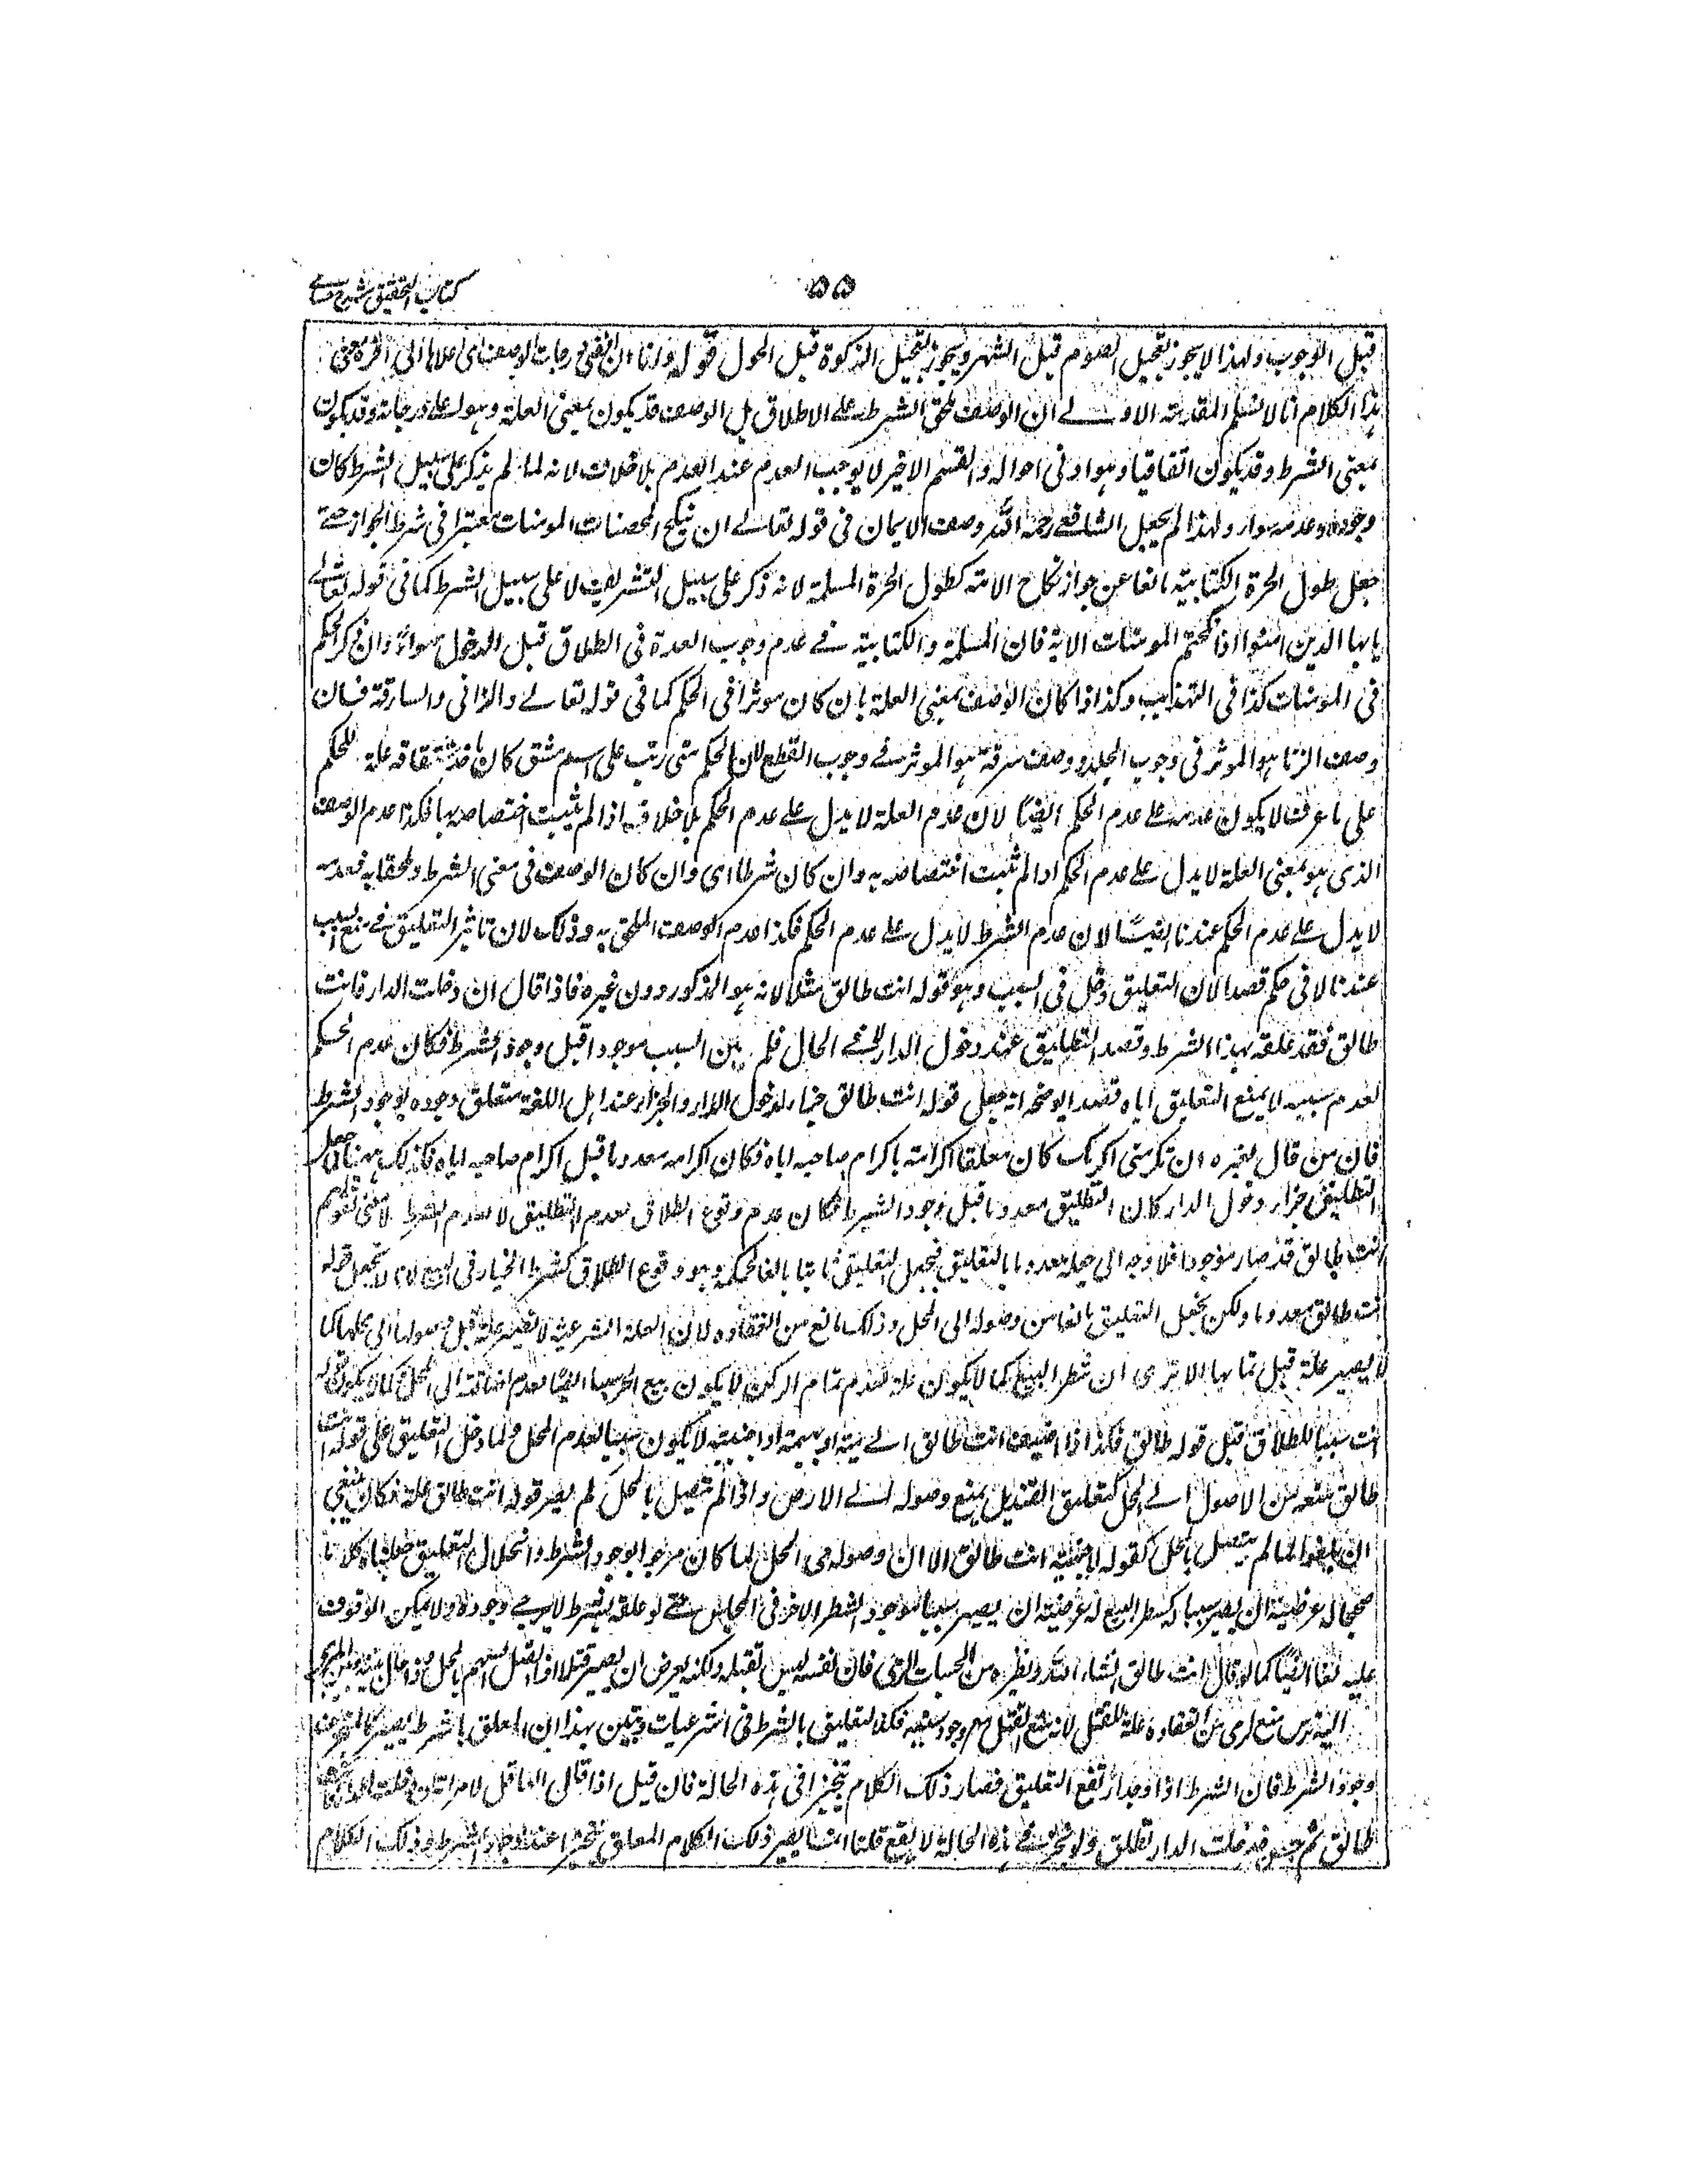 كتاب التحقيق شرح حسامى
٥٥
قبل الوجوب ولهذا لا يجوز تعجيل الصوم قبل الشهر ويجوز تعجيل الزكوة قبل الحول قوله وانا ان اقصى درجات الوصف اى اعلاها الى اخره معنى
هذا الكلام انا لا نسلم المقدمة الاولى ان الوصف ملحق بالشرط على الاطلاق بل الوصف قد يكون بمعنى العلة وهو اعلى درجاته وقد يكون
بمعنى الشرط وقد يكون اتفاقيا وهو ادنى احواله والقسم الاخير لا يوجب العدم عند العدم بلا خلاف لانه لما لم يذكر على سبيل الشرط كان
وجوده وعدمه سواء ولهذا لم يجعل الشافعى رحمه الله وصف الايمان فى قوله تعالى ان ينكح المحصنات المومنات معتبرا فى شرط الجواز حتى
جعل طول الحرة الكتابية مانعا عن جواز نكاح الامة كطول الحرة المسلمة لانه ذكر على سبيل التشريف لا على سبيل الشرط كما فى قوله تعالى
يايها الذين امنوا اذا نكحتم المومنات الاية فان المسلمة والكتابية فى عدم وجوب العدة فى الطلاق قبل الدخول سواء وان ذكر الحكم
فى المومنات كذا فى التهذيب وكذا اذا كان الوصف بمعنى العلة بان كان موثرا فى الحكم كما فى قوله تعالى والزانى والسارقة فان
وصف الزنا هو الموثر فى وجوب الجلد ووصف سرقة هو الموثر فى وجوب القطع لان الحكم متى رتب على اسم مشتق كان ماخذ اشتقاقه علة للحكم
على ما عرف لا يكون عدمه على عدم الحكم ايضا لان عدم العلة لا يدل على عدم الحكم بلا خلاف اذا لم يثبت اختصاصه بها فكذا عدم الوصف
الذى هو بمعنى العلة لا يدل على عدم الحكم اذا لم يثبت اختصاصه به وان كان شرطا اى وان كان الوصف فى معنى الشرط وملحقا به فعدمه
لا يدل على عدم الحكم عندنا ايضا لان عدم الشرط لا يدل على عدم الحكم فكذا عدم الوصف الملحق به وذلك لان تاثير التعليق فى منع السبب
عندنا لا فى حكم قصدا لان التعليق دخل فى السبب وهو قوله انت طالق مثلا لانه هو المذكور دون غيره فاذا قال ان دخلت الدار فانت
طالق فقد علقه بهذا الشرط وقصد التطليق عند دخول الدار لا فى الحال فلم يكن السبب موجودا قبل وجود الشرط فكان عدم الحكم
لعدم سببه لا بمنع التعليق اياه قصدا يوضحه انه جعل قوله انت طالق جزاء لدخول الدار والجزاء عند اهل اللغة متعلق وجوده بوجود الشرط
فان من قال لغيره ان تكرمنى اكرمك كان معلقا اكرامه باكرام صاحبه اياه فكان اكرامه معدوما قبل اكرام صاحبه اياه فكذلك ههنا لما جعل
التطليق جزاء دخول الدار كان التطليق معدوما قبل وجود الشرط فكان عدم وقوع الطلاق لعدم التطليق لا لعدم الشرط
انت طالق قد صار موجودا فلا وجه الى جعله معدوما بالتعليق فيجعل التعليق مانعا لحكمه وهو وقوع الطلاق كشرط الخيار فى البيع لانا لا نجعل قوله
انت طالق معدوما ولكن نجعل التعليق مانعا من وصوله الى المحل وذلك مانع من انعقاده لان العلة الشرعية لا تصير علة قبل وصولها الى محلها كما
لا يصير علة قبل تمامها الا ترى ان شطر البيع كما لا يكون علة لعدم تمام الركن لا يكون بيع الحر سببا ايضا لعدم اضافته الى المحل وكما لا يكون قوله
انت سببا للطلاق قبل قوله طالق فكذا اذا اضيف انت طالق الى ميتة او بهيمة او اجنبية لا يكون سببا لعدم المحل ولما دخل التعليق على قوله انت
طالق منعه من الوصول الى المحل كتعليق القنديل يمنع وصوله الى الارض واذا لم يتصل بالمحل لم يصر قوله انت طالق علة فكان ينبغى
ان يلغوا لما لم يتصل بالمحل كقوله لاجنبية انت طالق الا ان وصوله الى المحل لما كان مرجوا بوجود الشرط وانحلال التعليق جعلناه كلاما
صحيحا له عرضية ان يصير سببا كشطر البيع له عرضية ان يصير سببا لوجود الشطر الاخر فى المجلس حتى لو علقه بشرط لا يرجى وجوده ولا يمكن الوقوف
عليه لغا ايضا كما لو قال انت طالق انشاء الله ونظيره من الحسيات الرمى فان نفسه ليس بقتل ولكنه يعرض ان يصير قتلا اذا اتصل السهم بالمحل
الترس منع الرمى من انعقاده علة للقتل لانه منع القتل مع وجود سببه فكذا التعليق بالشرط فى الشرعيات وتبين بهذا ان المعلق بالشرط يصير كالمنجز عند
وجود الشرط فان الشرط اذا وجد ارتفع التعليق فصار ذلك الكلام تنجيزا فى هذه الحالة فان قيل اذا قال العاقل لامراته ان دخلت الدار فانت
طالق ثم جن فدخلت الدار تطلق ولو نجز فى هذه الحالة لا يقع قلنا انما يصير ذلك الكلام المعلق تنجيزا عند وجود الشرط وذلك الكلام